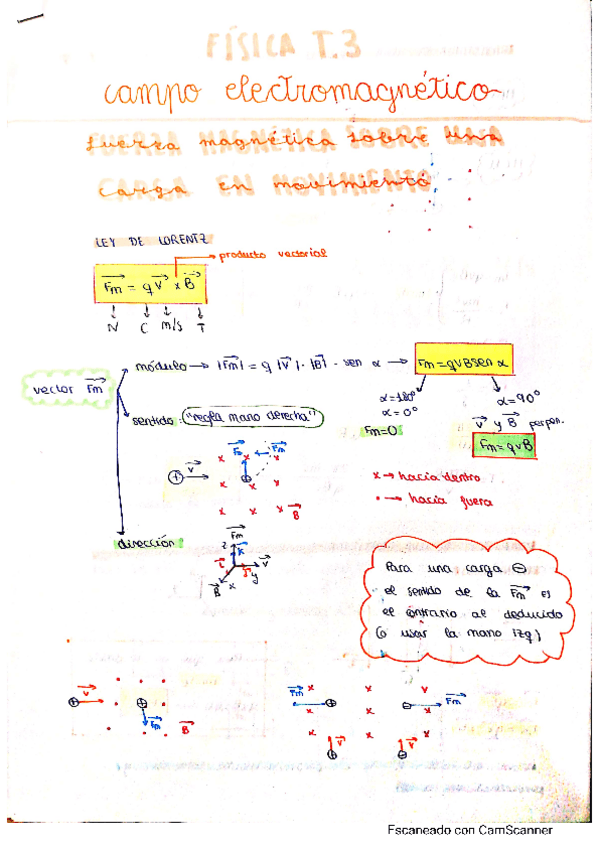 FÍSICA T.3
campo electromagnético
fuerza magnética sobre una
carga en movimiento
LEY DE LORENTZ
producto vectorial
Fm = q v x B
N C m/s T
vector Fm
módulo → |Fm| = q |v| · |B| · sen α → Fm = qvBsen α
α=180°
α=0°
Fm=0
α=90°
v y B perpen.
Fm=qvB
sentido: "regla mano derecha"
Fm
Fm
+ v
x x x
x x
x x x B
x → hacia dentro
· → hacia fuera
dirección
Fm
z
k
i j v
B x y
Para una carga ⊖
el sentido de la Fm es
el contrario al deducido
(o usar la mano izq)
v
Fm
B
Fm x x Fm
x x x
x v x v x
Escaneado con CamScanner